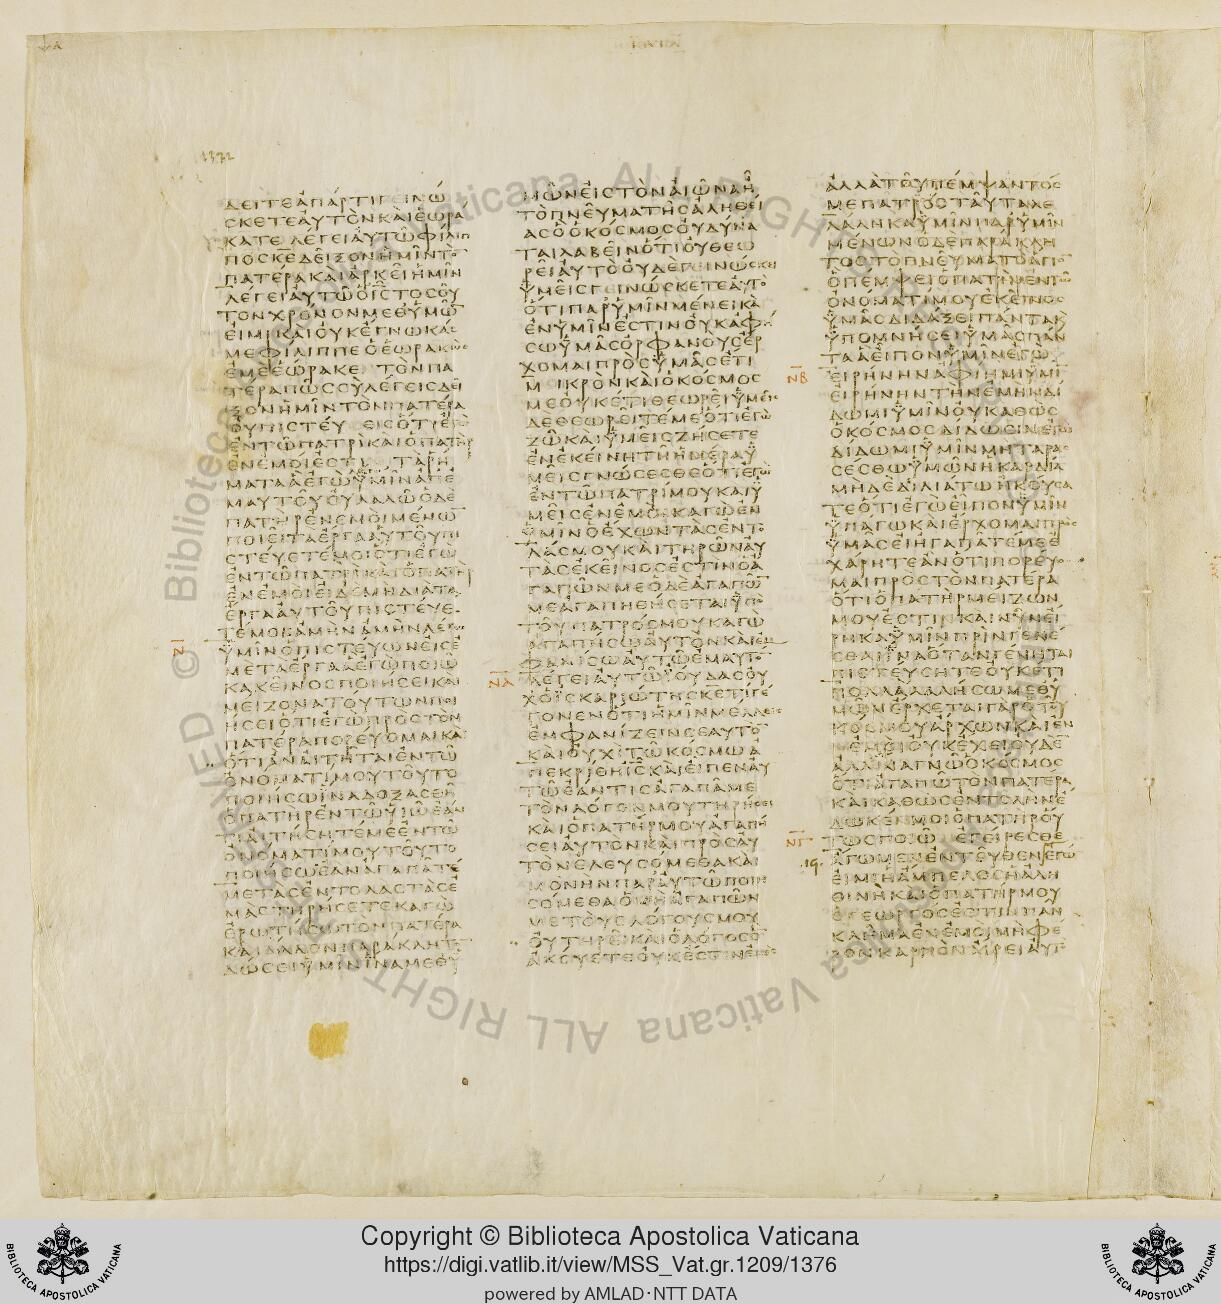 1372
ΔΕΙΤΕΑΠΑΡΤΙΓΕΙΝΩ
ΣΚΕΤΕΑΥΤΟΝΚΑΙΕΩΡΑ
ΚΑΤΕ ΛΕΓΕΙΑΥΤΩΦΙΛΙΠ
ΠΟΣΚΕΔΕΙΞΟΝΗΜΙΝΤΟ̅
ΠΑΤΕΡΑΚΑΙΑΡΚΕΙΗΜΙΝ
ΛΕΓΕΙΑΥΤΩΟΙ̅Σ̅ΤΟΣΟΥ
ΤΟΝΧΡΟΝΟΝΜΕΘΥΜΩ̅
ΕΙΜΙΚΑΙΟΥΚΕΓΝΩΚΑΣ
ΜΕΦΙΛΙΠΠΕΟΕΩΡΑΚΩΣ
ΕΜΕΕΩΡΑΚΕ ΤΟΝΠΑ
ΤΕΡΑΠΩΣΣΥΛΕΓΕΙΣΔΕΙ
ΞΟΝΗΜΙΝΤΟΝΠΑΤΕΡΑ
ΟΥΠΙΣΤΕΥ ΕΙΣΟΤΙΕΓΩ
ΕΝΤΩΠΑΤΡΙΚΑΙΟΠΑΤΗΡ
ΕΝΕΜΟΙΕΣΤΙ ΤΑΡΗ
ΜΑΤΑΑΕΓΩΫΜΙΝΑΠΕ
ΜΑΥΤΟΥΟΥΛΑΛΩΟΔΕ
ΠΑΤΗΡΕΝΕΜΟΙΜΕΝΩ̅
ΠΟΙΕΙΤΑΕΡΓΑΑΥΤΟΥΠΙ
ΣΤΕΥΕΤΕΜΟΙΟΤΙΕΓΩ
ΕΝΤΩΠΑΤΡΙΚΑΙΟΠΑΤΗΡ
ΕΝΕΜΟΙΕΙΔΕΜΗΔΙΑΤΑ
ΕΡΓΑΑΥΤΟΥΠΙΣΤΕΥΕ
ΤΕΜΟΙΑΜΗΝΑΜΗΝΛΕΓΩ
Ν̅
ΫΜΙΝΟΠΙΣΤΕΥΩΝΕΙΣΕ
ΜΕΤΑΕΡΓΑΑΕΓΩΠΟΙΩ
ΚΑΚΕΙΝΟΣΠΟΙΗΣΕΙΚΑΙ
ΜΕΙΖΟΝΑΤΟΥΤΩΝΠΟΙ
ΗΣΕΙΟΤΙΕΓΩΠΡΟΣΤΟΝ
ΠΑΤΕΡΑΠΟΡΕΥΟΜΑΙΚΑΙ
ΟΤΙΑΝΑΙΤΗΤΑΙΕΝΤΩ
ΟΝΟΜΑΤΙΜΟΥΤΟΥΤΟ
ΠΟΙΗΣΩΪΝΑΔΟΞΑΣΘΗ
ΟΠΑΤΗΡΕΝΤΩΫΙΩΕΑΝ
ΤΙΑΙΤΗΣΗΤΕΜΕΕΝΤΩ
ΟΝΟΜΑΤΙΜΟΥΤΟΥΤΟ
ΠΟΙΗΣΩΕΑΝΑΓΑΠΑΤΕ
ΜΕΤΑΣΕΝΤΟΛΑΣΤΑΣΕ
ΜΑΣΤΗΡΗΣΕΤΕΚΑΓΩ
ΕΡΩΤΗΣΩΤΟΝΠΑΤΕΡΑ
ΚΑΙΑΛΛΟΝΠΑΡΑΚΛΗΤΟ̅
ΔΩΣΕΙΫΜΙΝΪΝΑΜΕΘΫ
ΜΩΝΕΙΣΤΟΝΑΙΩΝΑΗ
ΤΟΠΝΕΥΜΑΤΗΣΑΛΗΘΕΙ
ΑΣΟΟΚΟΣΜΟΣΟΥΔΥΝΑ
ΤΑΙΛΑΒΕΙΝΟΤΙΟΥΘΕΩ
ΡΕΙΑΥΤΟΟΥΔΕΓΕΙΝΩΣΚΕΙ
ΫΜΕΙΣΓΕΙΝΩΣΚΕΤΕΑΥΤΟ
ΟΤΙΠΑΡΫΜΙΝΜΕΝΕΙΚΑΙ
ΕΝΫΜΙΝΕΣΤΙΝΟΥΚΑΦΗ
ΣΩΫΜΑΣΟΡΦΑΝΟΥΣΕΡ
ΧΟΜΑΙΠΡΟΣΫΜΑΣΕΤΙ
Μ ΙΚΡΟΝΚΑΙΟΚΟΣΜΟΣ
ΜΕΟΥΚΕΤΙΘΕΩΡΕΙΫΜΕΙΣ
ΔΕΘΕΩΡΕΙΤΕΜΕΟΤΙΕΓΩ
ΖΩΚΑΙΫΜΕΙΣΖΗΣΕΤΕ
ΕΝΕΚΕΙΝΗΤΗΗΜΕΡΑΫ
ΜΕΙΣΓΝΩΣΕΣΘΕΟΤΙΕΓΩ
ΕΝΤΩΠΑΤΡΙΜΟΥΚΑΙΫ
ΜΕΙΣΕΝΕΜΟΙΚΑΓΩΕΝ
ΫΜΙΝΟΕΧΩΝΤΑΣΕΝΤΟ
ΛΑΣΜΟΥΚΑΙΤΗΡΩΝΑΥ
ΤΑΣΕΚΕΙΝΟΣΕΣΤΙΝΟΑ
ΓΑΠΩΝΜΕΟΔΕΑΓΑΠΩ̅
ΜΕΑΓΑΠΗΘΗΣΕΤΑΙΫΠΟ
ΤΟΥΠΑΤΡΟΣΜΟΥΚΑΓΩ
ΑΓΑΠΗΣΩΑΥΤΟΝΚΑΙΕΜ
ΦΑΝΙΣΩΑΥΤΩΕΜΑΥΤΟ̅
ΝΑ̅
ΛΕΓΕΙΑΥΤΩΪΟΥΔΑΣΟΥ
ΧΟΪΣΚΑΡΙΩΤΗΣΚΕΤΙΓΕ
ΓΟΝΕΝΟΤΙΗΜΙΝΜΕΛΛΕΙΣ
ΕΜΦΑΝΙΖΕΙΝΣΕΑΥΤΟ̅
ΚΑΙΟΥΧΙΤΩΚΟΣΜΩΑ
ΠΕΚΡΙΘΗΙ̅Σ̅ΚΑΙΕΙΠΕΝΑΥ
ΤΩΕΑΝΤΙΣΑΓΑΠΑΜΕ
ΤΟΝΛΟΓΟΝΜΟΥΤΗΡΗΣΕΙ
ΚΑΙΟΠΑΤΗΡΜΟΥΑΓΑΠΗ
ΣΕΙΑΥΤΟΝΚΑΙΠΡΟΣΑΥ
ΤΟΝΕΛΕΥΣΟΜΕΘΑΚΑΙ
ΜΟΝΗΝΠΑΡΑΥΤΩΠΟΙΗ
ΣΟΜΕΘΑΟΜΗΑΓΑΠΩΝ
ΜΕΤΟΥΣΛΟΓΟΥΣΜΟΥ
ΟΥΤΗΡΕΙΚΑΙΟΛΟΓΟΣΟ̅
ΑΚΟΥΕΤΕΟΥΚΕΣΤΙΝΕΜΟΣ
ΑΛΛΑΤΟΥΠΕΜΨΑΝΤΟΣ
ΜΕΠΑΤΡΟΣΤΑΥΤΑΛΕ
ΛΑΛΗΚΑΫΜΙΝΠΑΡΫΜΙΝ
ΜΕΝΩΝΟΔΕΠΑΡΑΚΛΗ
ΤΟΣΤΟΠΝΕΥΜΑΤΟΑΓΙΟ̅
ΟΠΕΜΨΕΙΟΠΑΤΗΡΕΝΤΩ
ΟΝΟΜΑΤΙΜΟΥΕΚΕΙΝΟΣ
ΫΜΑΣΔΙΔΑΞΕΙΠΑΝΤΑΚΑΙ
ΫΠΟΜΝΗΣΕΙΫΜΑΣΠΑΝ
ΤΑΑΕΙΠΟΝΫΜΙΝΕΓΩ
ΝΒ̅
ΕΙΡΗΝΗΝΑΦΙΗΜΙΫΜΙ̅
ΕΙΡΗΝΗΝΤΗΝΕΜΗΝΔΙ
ΔΩΜΙΫΜΙΝΟΥΚΑΘΩΣ
ΟΚΟΣΜΟΣΔΙΔΩΣΙΝΕΓΩ
ΔΙΔΩΜΙΫΜΙΝΜΗΤΑΡΑΣ
ΣΕΣΘΩΫΜΩΝΗΚΑΡΔΙΑ
ΜΗΔΕΔΙΛΙΑΤΩΗΚΟΥΣΑ
ΤΕΟΤΙΕΓΩΕΙΠΟΝΫΜΙΝ
ΫΠΑΓΩΚΑΙΕΡΧΟΜΑΙΠΡΟΣ
ΫΜΑΣΕΙΗΓΑΠΑΤΕΜΕΕ
ΧΑΡΗΤΕΑΝΟΤΙΠΟΡΕΥΟ
ΜΑΙΠΡΟΣΤΟΝΠΑΤΕΡΑ
ΟΤΙΟΠΑΤΗΡΜΕΙΖΩΝ
ΜΟΥΕΣΤΙΝΚΑΙΝΥΝΕΙ
ΡΗΚΑΫΜΙΝΠΡΙΝΓΕΝΕ
ΣΘΑΙΪΝΑΟΤΑΝΓΕΝΗΤΑΙ
ΠΙΣΤΕΥΣΗΤΕΟΥΚΕΤΙ
ΠΟΛΛΑΛΑΛΗΣΩΜΕΘΫ
ΜΩΝΕΡΧΕΤΑΙΓΑΡΟΤΟΥ
ΚΟΣΜΟΥΑΡΧΩΝΚΑΙΕΝ
ΕΜΟΙΟΥΚΕΧΕΙΟΥΔΕ̅
ΑΛΛΙΝΑΓΝΩΟΚΟΣΜΟΣ
ΟΤΙΑΓΑΠΩΤΟΝΠΑΤΕΡΑ
ΚΑΙΚΑΘΩΣΕΝΤΟΛΗΝΕ
ΔΩΚΕΝΜΟΙΟΠΑΤΗΡΟΥ
ΝΓ̅
ΤΩΣΠΟΙΩ ΕΓΕΙΡΕΣΘΕ
ΑΓΩΜΕΝΕΝΤΕΥΘΕΝΕΓΩ
ΕΙΜΙΗΑΜΠΕΛΟΣΗΑΛΗ
ΘΙΝΗΚΑΙΟΠΑΤΗΡΜΟΥ
ΟΓΕΩΡΓΟΣΕΣΤΙΝΠΑΝ
ΚΛΗΜΑΕΝΕΜΟΙΜΗΦΕ
ΡΟΝΚΑΡΠΟΝΑΙΡΕΙΑΥΤΟ
© Biblioteca Apostolica Vaticana ALL RIGHTS RESERVED
Copyright © Biblioteca Apostolica Vaticana
https://digi.vatlib.it/view/MSS_Vat.gr.1209/1376
powered by AMLAD·NTT DATA
BIBLIOTECA APOSTOLICA VATICANA
BIBLIOTECA APOSTOLICA VATICANA